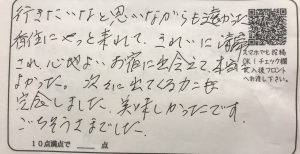 行きたいなと思いながらも遠かった
能住にやっと来れて、きれいに清掃
され、心地よいお宿に出会えて本当
よかった。次々に出てくるカニを
完食しました。美味しかったです。
ごちそうさまでした。
スマホでも投稿
OK！チェック欄
記入後フロント
へお渡し下さい。
10点満点で 点